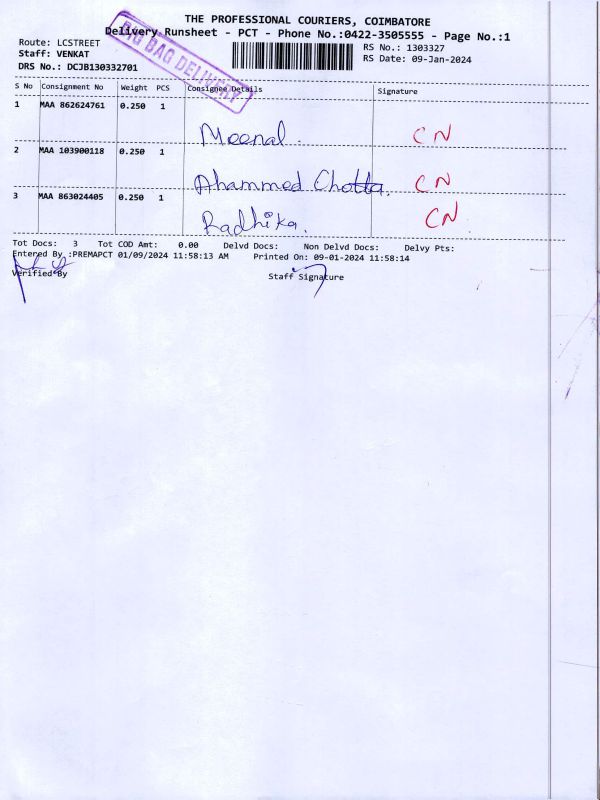 THE PROFESSIONAL COURIERS, COIMBATORE
Delivery Runsheet - PCT - Phone No.:0422-3505555 - Page No.:1
Route: LCSTREET
Staff: VENKAT
DRS No.: DCJB130332701
BIG BAG DELIVERY
RS No.: 1303327
RS Date: 09-Jan-2024
S No Consignment No Weight PCS Consignee Details Signature
1 MAA 862624761 0.250 1
Meenal CN
2 MAA 103900118 0.250 1
Ahammed Chotta. CN
3 MAA 863024405 0.250 1
Radhika. CN
Tot Docs: 3 Tot COD Amt: 0.00 Delvd Docs: Non Delvd Docs: Delvy Pts:
Entered By :PREMAPCT 01/09/2024 11:58:13 AM Printed On: 09-01-2024 11:58:14
Verified By Staff Signature